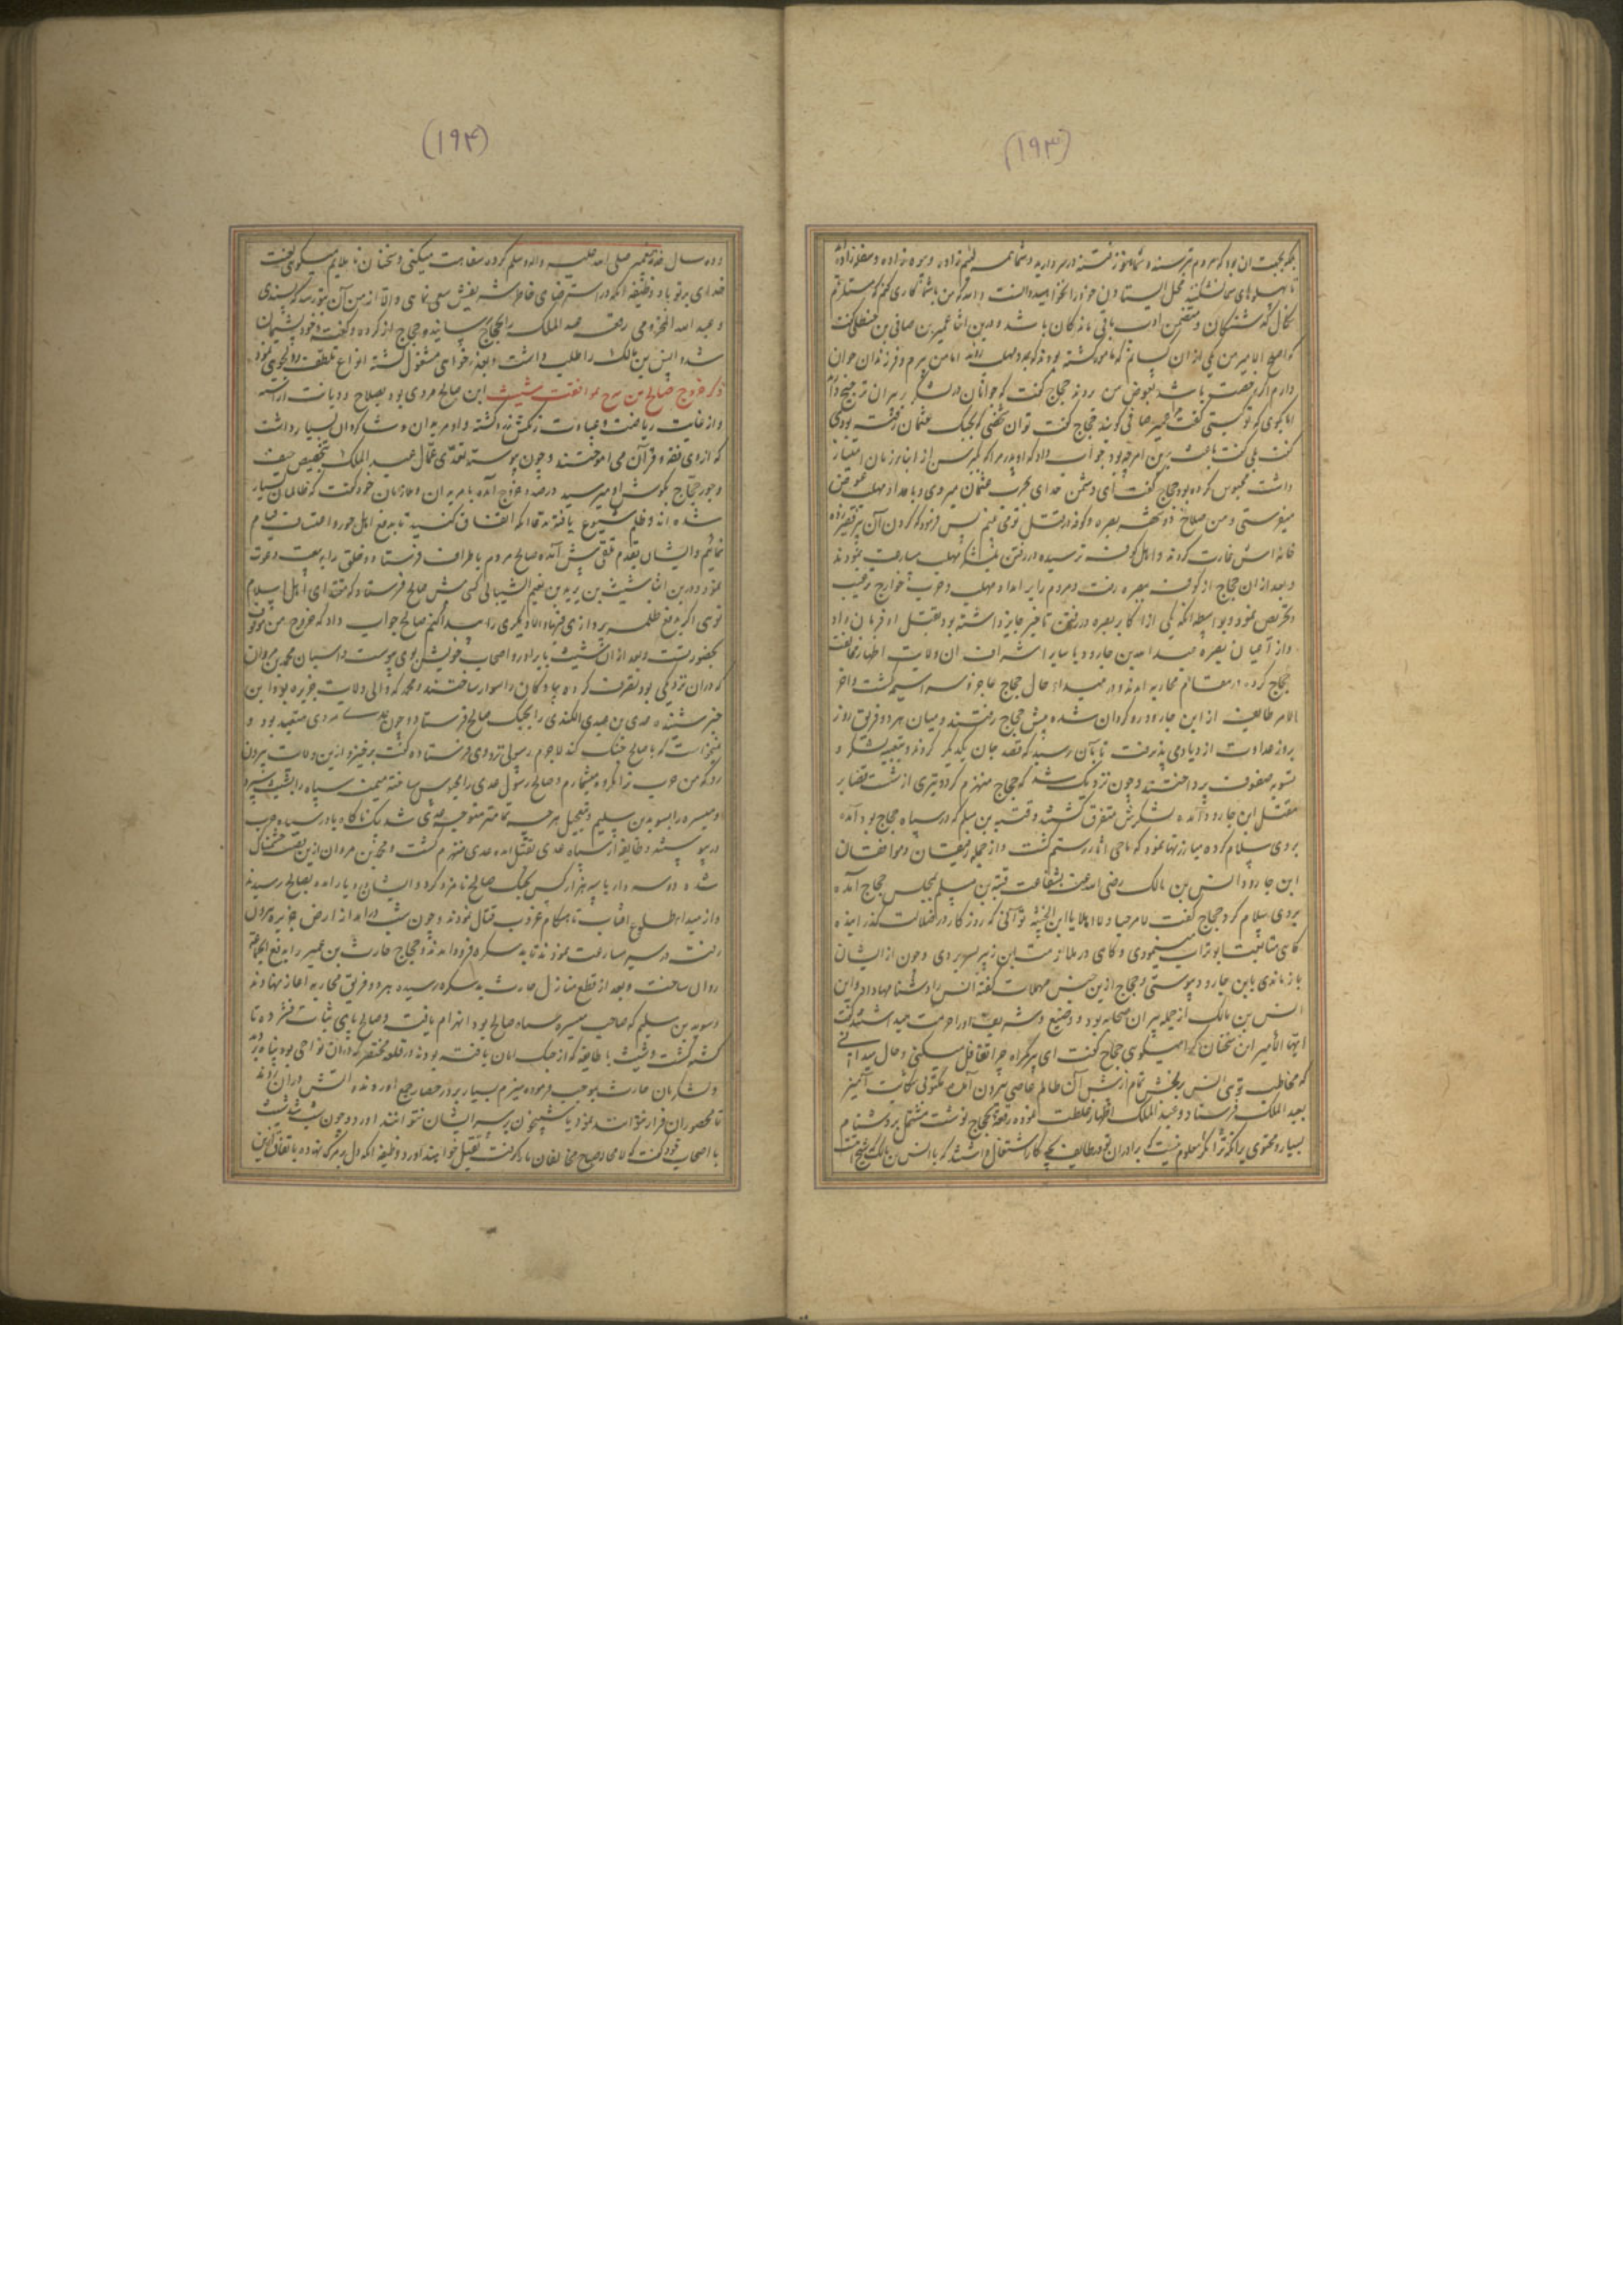 (۱۹۳)
بلکه بجهت آن بود که مردم
تا پهلوهای شما نشکنند
نکال گذشتگان و متضمن ادب باقی ماندگان باشد و درین اثنا عمیر بن
که اصلح الله الامیر من یکی از آن
دارم اگر رخصت باشد بعوض من روند حجاج گفت که جوانان در لشکر
اما بکوی که تو کیستی گفت مرا عمیر
گفت بلی گفت باعث برین امر چه بود جواب داد که او پدر مرا که
داشت محبوس کرده بود حجاج گفت ای دشمن خدای بحرب عثمان میروی و
میفرستی و من صلاح دو شهر بصره و کوفه در قتل تو می بینم پس فرمود که گردن آن
خانه اش غارت کردند و اهل کوفه ترسیده در رفتن بلشکر مهلب مسارعت نمودند
و بعد از آن حجاج از کوفه ببصره رفت و مردم را بر امداد مهلب و حرب خوارج ترغیب
و تحریص نمود و بواسطه آنکه یکی از اکابر بصره در رفتن تاخیر جایز داشته بود بقتل او فرمان داد
و از اعیان بصره عبد الله بن جارود با سایر اشراف آن ولایت اظهار مخالفت
حجاج کرده در مقام محاربه آمدند و در مبداء حال حجاج عاجز و سراسیمه گشت و آخر
الامر طایفه از ابن جارود روگردان شده پیش حجاج رفتند و میان هر دو فریق روز
بروز عداوت ازدیاد می پذیرفت تا بآن رسید که قصد جان یکدیگر کردند و بتعبیه لشکر و
تسویه صفوف پرداختند و چون نزدیک شد که حجاج منهزم گردد تیری از شست قضا بر
مقتل ابن جارود آمده لشکرش متفرق گشتند و قتیبه بن مسلم که در سپاه حجاج بود آمده
بر وی سلام کرده مبارزتها نمود که ماحی آثار رستم گشت و از جمله رفیقان و موافقان
ابن جارود انس بن مالک رضی الله عنه بشفاعت قتیبه بن مسلم بمجلس حجاج آمده
بر وی سلام کرد حجاج گفت لا مرحبا و لا اهلا یا ابن الخبیثه تو آنی که روزگار در ضلالت گذرانیده
گاهی متابعت ابو تراب مینمودی و گاهی در ملازمت ابن زبیر بسر بردی و چون از ایشان
باز ماندی بابن جارود پیوستی و حجاج ازین جنس مهملات گفته انس را دشنامها داد و این
انس بن مالک از جمله پیران صحابه بود و وضیع و شریف او را حرمت میداشتند گفت
ایها الامیر این سخنان کرا میگوی حجاج گفت ای پیر گمراه چرا تغافل میکنی و حال
که مخاطب توی انس برنجش تمام از پیش آن ظالم عاصی بیرون آمده مکتوبی شکایت آمیز
بعبد الملک فرستاد و عبد الملک اظهار غلظت نموده رقعه بحجاج نوشت مشتمل بر دشنام
بسیار و محتوی بر آنکه ترا مگر معلوم نیست که برادران تو در طایف بچه کار اشتغال داشتند که با انس بن مالک
(۱۹۴)
و ده سال خدمت پیغمبر صلی الله علیه و آله و سلم کرده سفاهت میکنی و سخنان نا ملایم میگوی
خدای بر تو باد وظیفه آنکه در استرضای خاطر شریفش سعی نمای و الا از من آن بتو رسد که
و عبد الله المخزومی رقعه عبد الملک را بحجاج رسانیده حجاج از کرده و گفته خود پشیمان
شد و انس بن مالک را طلب داشت و بعذر خواهی مشغول گشته انواع تلطف و دلجوی نمود
ذکر خروج صالح بن مسرح بموافقت شبیب ابن صالح مردی بود بصلاح و دیانت آراسته
و از غایت ریاضت و عبادت رنگش زرد گشته و او مریدان و شاگردان بسیار داشت
که از وی فقه و قرآن می آموختند و چون پیوسته تعدی عمال عبد الملک بتخصیص حیف
و جور حجاج بگوش او میرسید در صدد خروج آمده با مریدان و ملازمان خود گفت که ظالمان بسیار
شده اند و ظلم شیوع یافته
نمائیم و ایشان بقدم تلقی پیش آمده صالح مردم باطراف فرستاده و خلق را به بیعت دعوت
نمود و درین اثنا شبیب بن یزید بن نعیم الشیبانی کس پیش صالح فرستاد که مقتدای اهل اسلام
توی اگر بدفع ظلمه پردازی فبها و الا دیگری را پیدا کنیم صالح جواب داد که خروج من موقوف
بحضور تست و بعد از آن شبیب با برادر و اصحاب خویش بوی پیوست و اسبان محمد بن مروان
که در آن نزدیکی بود تصرف کرده پیادگان را سوار ساختند و محمد که والی ولایت جزیره بود این
خبر شنیده عدی بن عدی الکندی را بجنگ صالح فرستاد و چون عدی مردی متعبد بود و
نمیخواست که با صالح جنگ کند لاجرم رسولی نزد وی فرستاده گفت برخیز و ازین ولایت بیرون
رو که من حرب ترا مکروه میشمارم و صالح رسول عدی را محبوس ساخته میمنه سپاه را بشبیب سپرد
و میسره را بسوید بن سلیم و بتعجیل هر چه تمامتر متوجه عدی شد یکناگاه
در پیوستند و طایفه از سپاه عدی بقتل آمده عدی منهزم گشت و محمد بن مروان ازین قضیه خشمناک
شده دو سردار با سه هزار کس بجنگ صالح نامزد کرد و ایشان بدیار آمده بصالح رسیدند
و از مبداء طلوع آفتاب تا هنگام غروب قتال نمودند و چون شب درآمد از ارض جزیره بیرون
رفته در سیر مسارعت نمودند تا بدسکره فرود آمدند و حجاج حارث بن عمیر را بدفع
روان ساخت و بعد از قطع منازل حارث بدسکره رسیده هر دو فریق محاربه آغاز نهادند
و سوید بن سلیم که صاحب میسره سپاه صالح بود انهزام یافت و صالح پای ثبات فشرده تا
کشته گشت و شبیب با طایفه که از جنگ امان یافته بودند در قلعه مختصر که در آن نواحی بود پناه برد
و لشکریان حارث بموجب فرموده هیزم بسیار بر در حصار جمع آوردند و آتش در آن زدند
تا محصوران فرار نتوانند نمود یا شبیخون بر سر ایشان نتوانند آورد و چون شب
با اصحاب خود گفت که لا محاله صباح مخالفان ما را گرفته بقتل خواهند آورد وظیفه آنکه دل بر مرگ نهاده باتفاق